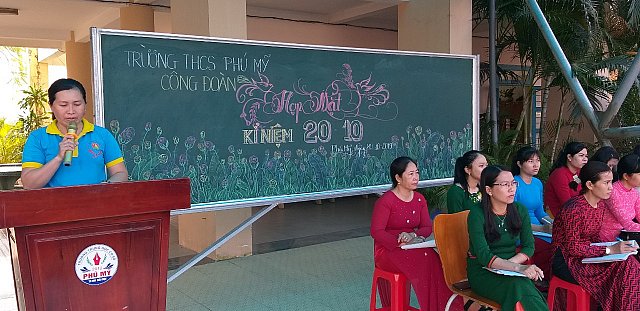 TRƯỜNG THCS PHÚ MỸ
CÔNG ĐOÀN
Họp Mặt
KỈ NIỆM 20 10
PHÚ MỸ